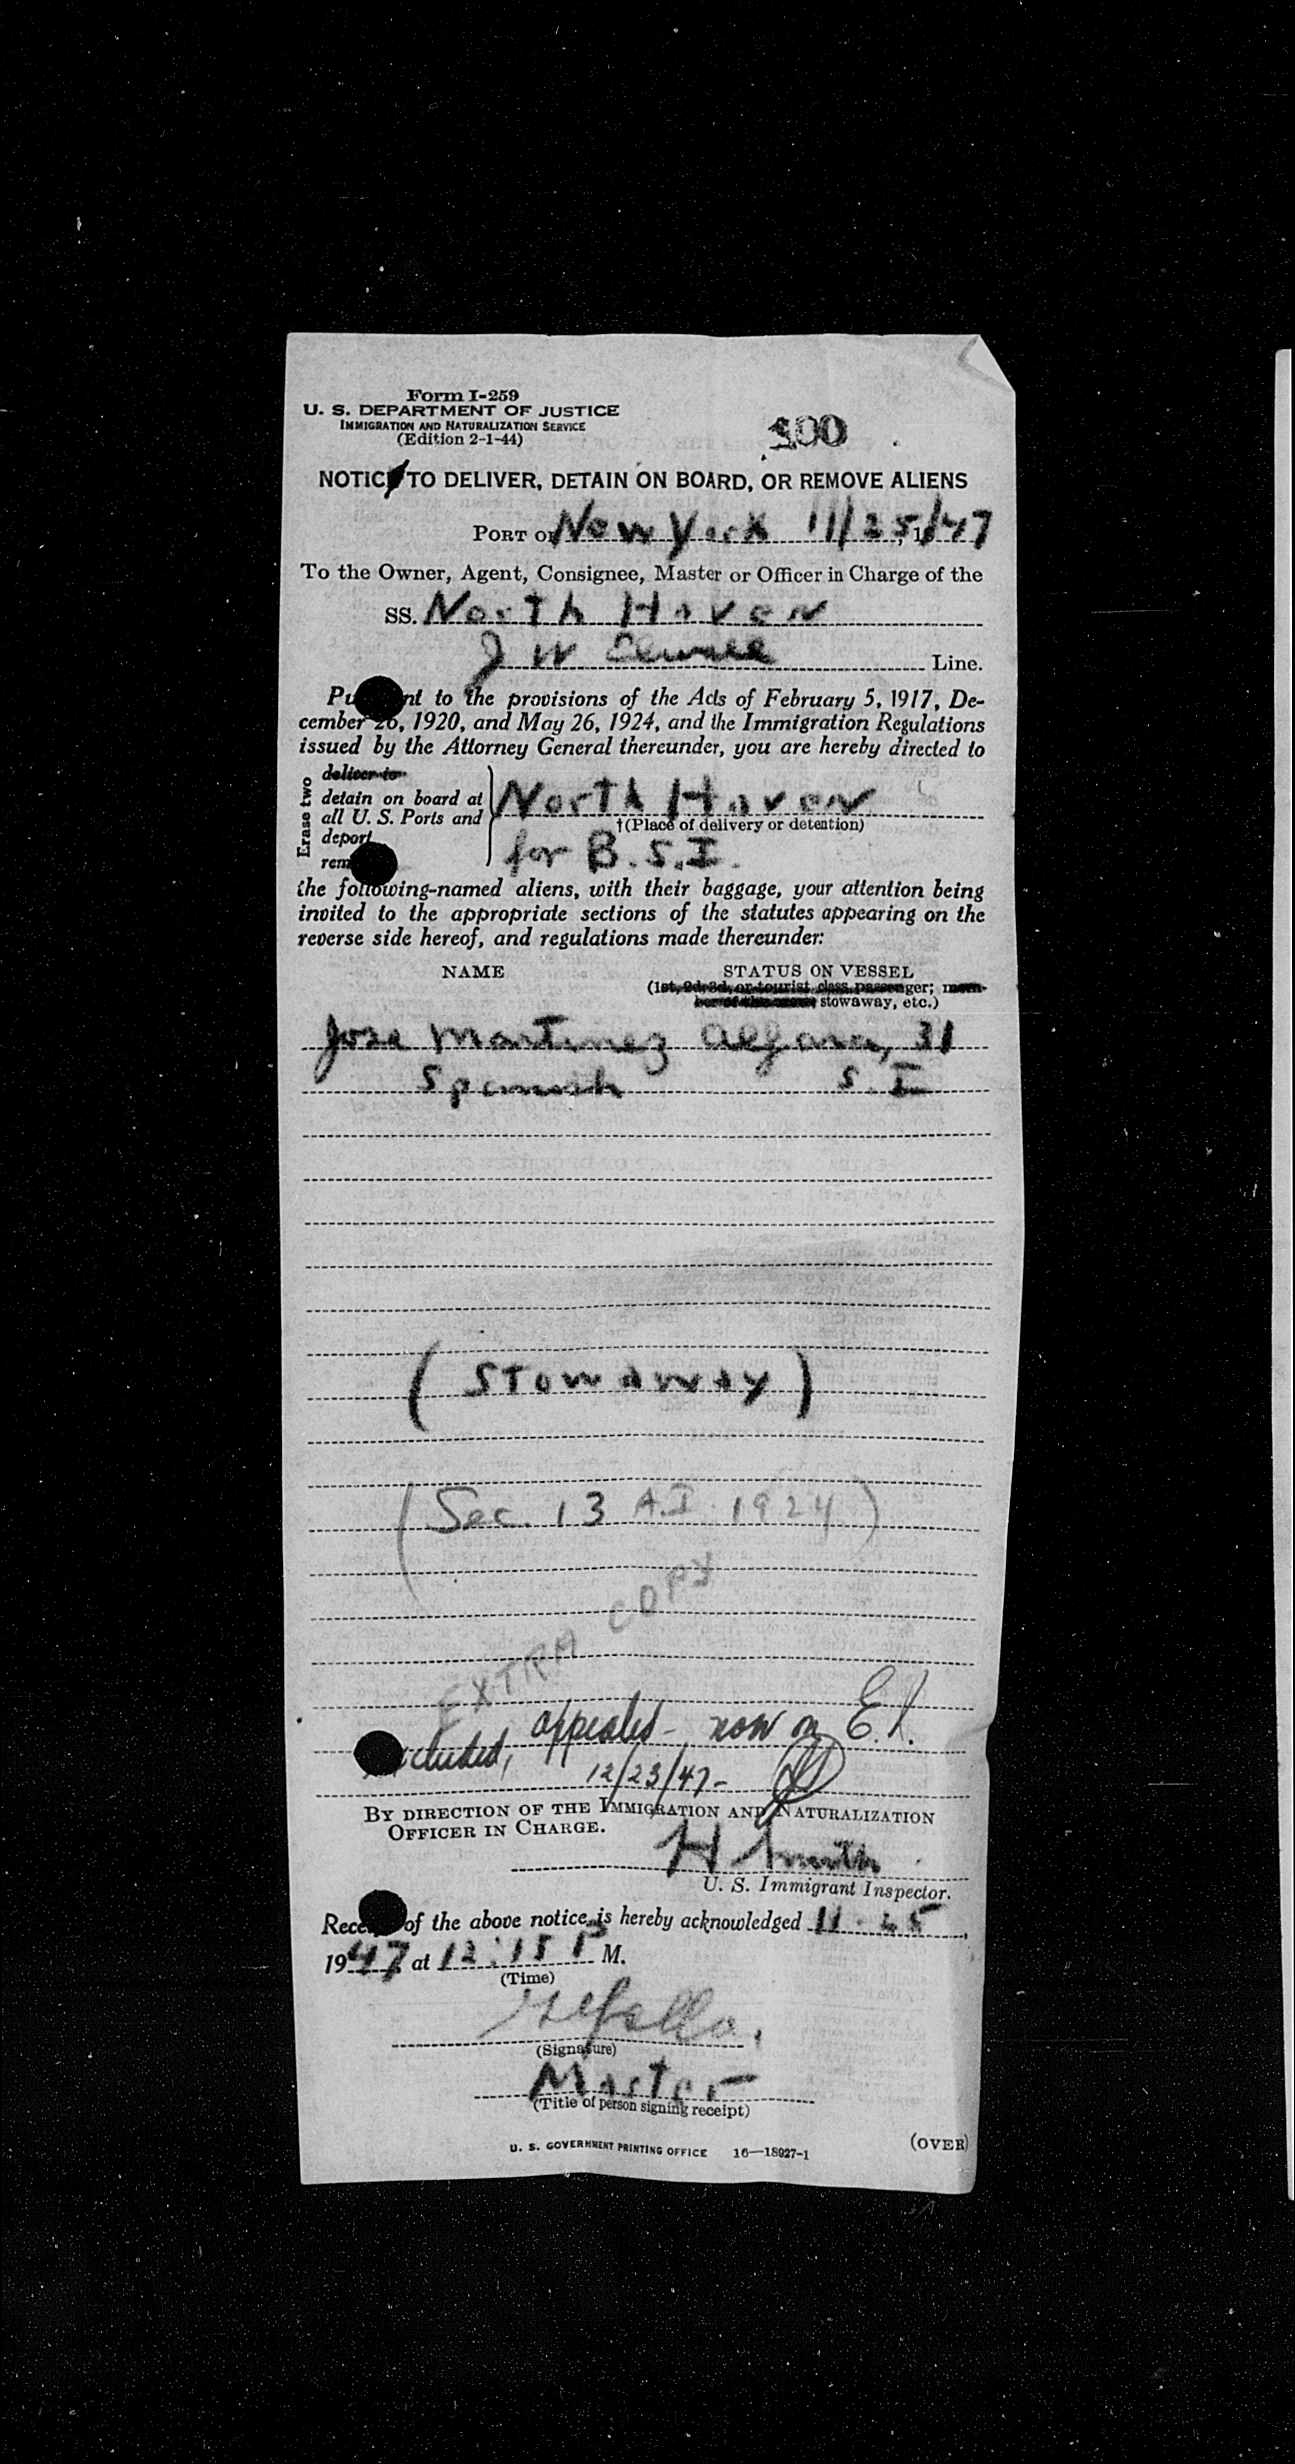 Form I-259
U. S. DEPARTMENT OF JUSTICE
IMMIGRATION AND NATURALIZATION SERVICE
(Edition 2-1-44)
NOTICE TO DELIVER, DETAIN ON BOARD, OR REMOVE ALIENS
PORT OF New York 11/25/47
To the Owner, Agent, Consignee, Master or Officer in Charge of the
SS. North Haven
J W Line.
to the provisions of the Acts of February 5, 1917, De-
cember 26, 1920, and May 26, 1924, and the Immigration Regulations
issued by the Attorney General thereunder, you are hereby directed to
Erase two
deliver to
detain on board at
all U. S. Ports and
deport
North Haven
†(Place of delivery or detention)
for B.S.I.
the following-named aliens, with their baggage, your attention being
invited to the appropriate sections of the statutes appearing on the
reverse side hereof, and regulations made thereunder:
NAME STATUS ON VESSEL
(1st, 2d, 3d, or tourist class passenger; mem-
ber of the crew; stowaway, etc.)
Jose Martinez Algara, 31
Spanish S. I
(Stowaway)
(Sec. 13 A.I. 1924)
EXTRA COPY
appealed - now on E.I.
12/23/47-
BY DIRECTION OF THE IMMIGRATION AND NATURALIZATION
OFFICER IN CHARGE.
H Smith
U. S. Immigrant Inspector.
of the above notice is hereby acknowledged 11-25,
1947 at 12:15 P M.
(Time)
(Signature)
Master
(Title of person signing receipt)
U. S. GOVERNMENT PRINTING OFFICE 16—18927-1
(OVER)